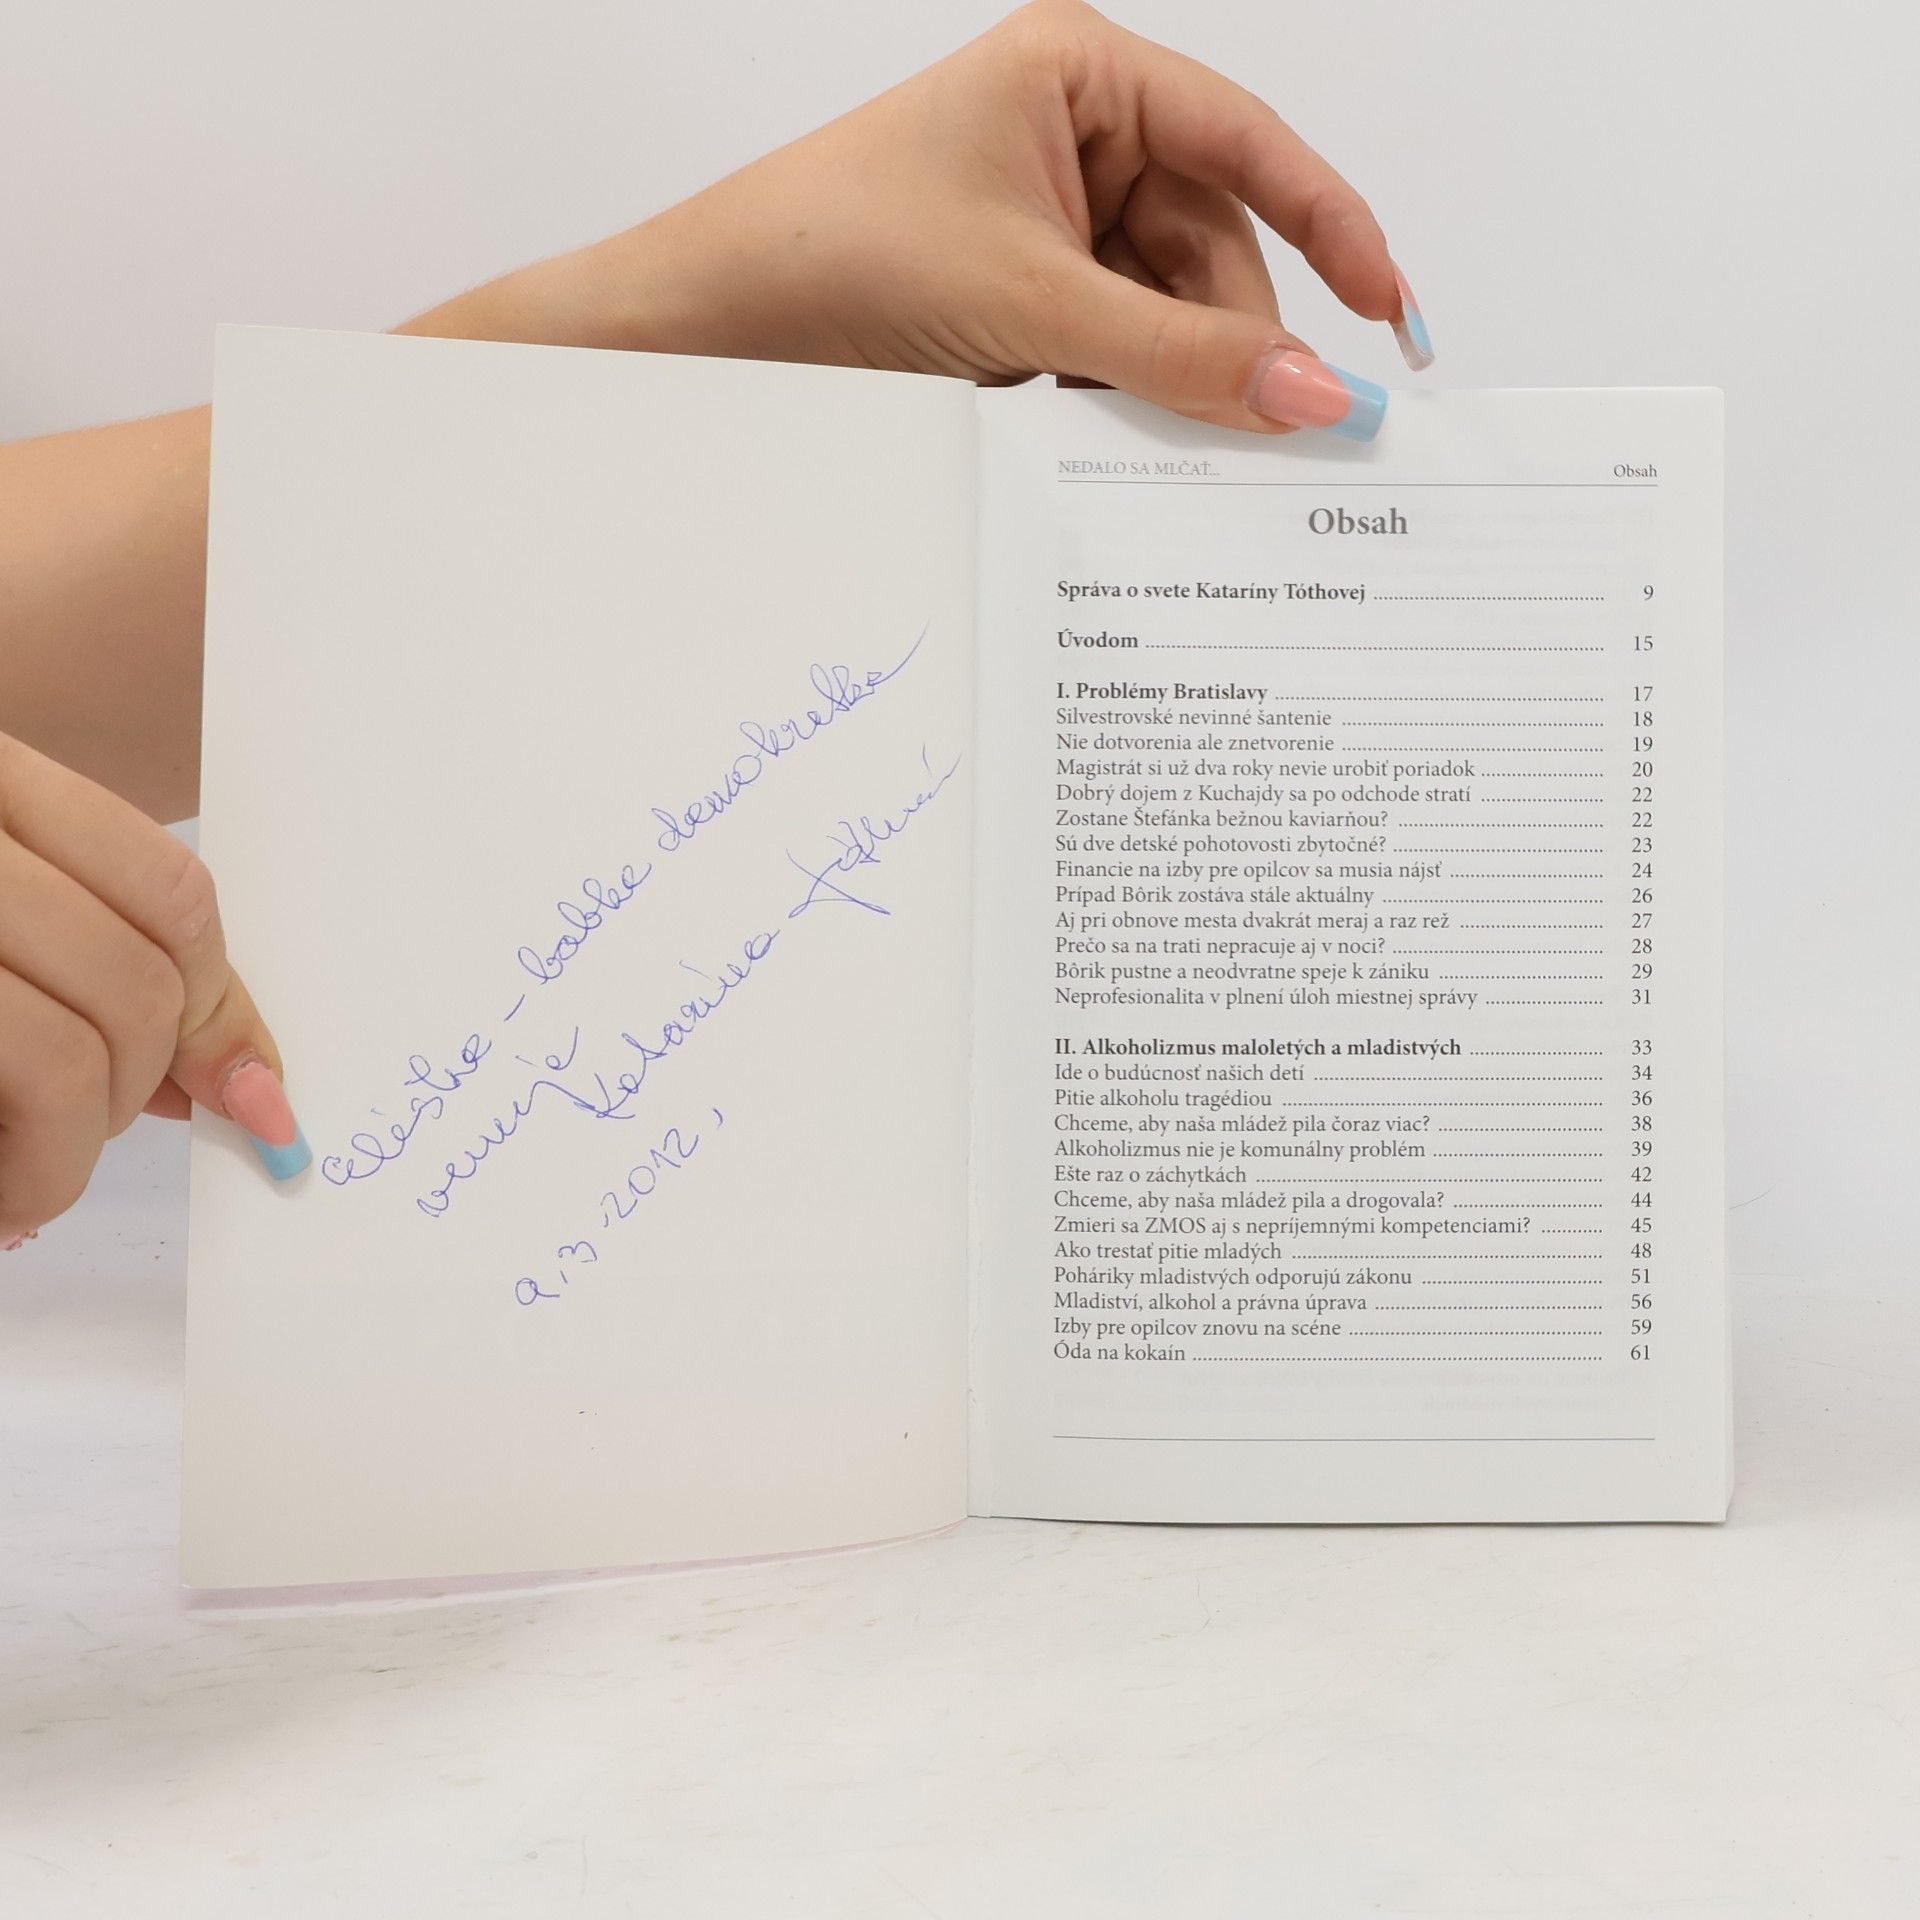 babka demokratka
venuje
Katarína Tóthová
.3.2012,
NEDALO SA MLČAŤ...
Obsah
Obsah
Správa o svete Kataríny Tóthovej 9
Úvodom 15
I. Problémy Bratislavy 17
Silvestrovské nevinné šantenie 18
Nie dotvorenia ale znetvorenie 19
Magistrát si už dva roky nevie urobiť poriadok 20
Dobrý dojem z Kuchajdy sa po odchode stratí 22
Zostane Štefánka bežnou kaviarňou? 22
Sú dve detské pohotovosti zbytočné? 23
Financie na izby pre opilcov sa musia nájsť 24
Prípad Bôrik zostáva stále aktuálny 26
Aj pri obnove mesta dvakrát meraj a raz rež 27
Prečo sa na trati nepracuje aj v noci? 28
Bôrik pustne a neodvratne speje k zániku 29
Neprofesionalita v plnení úloh miestnej správy 31
II. Alkoholizmus maloletých a mladistvých 33
Ide o budúcnosť našich detí 34
Pitie alkoholu tragédiou 36
Chceme, aby naša mládež pila čoraz viac? 38
Alkoholizmus nie je komunálny problém 39
Ešte raz o záchytkách 42
Chceme, aby naša mládež pila a drogovala? 44
Zmieri sa ZMOS aj s nepríjemnými kompetenciami? 45
Ako trestať pitie mladých 48
Poháriky mladistvých odporujú zákonu 51
Mladiství, alkohol a právna úprava 56
Izby pre opilcov znovu na scéne 59
Óda na kokaín 61